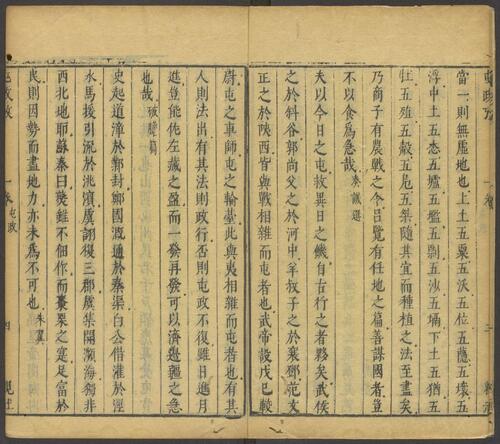 當一則無虛地也上土五粟五沃五位五隱五壤五
浮中土五怸五壚五壏五剽五沙五塥下土五猶五
壯五殖五觳五鳧五桀隨其宜而種植之法至盡矣
乃商子有農戰之令呂覽有任地之篇善謀國者豈
不以食為急哉
夫以今日之屯牧異日之饑自古行之者夥矣武侯
之於斜谷郭尚父之於河中羊叔子之於襄鄧范文
正之於陝西皆與戰相雜而屯者也武帝設戊巳校
尉屯之車師屯之輪臺此與夷相雜而屯者也有其
人則法出有其法則政行否則屯政不復雖日進月
進豈能佐左藏之盈而一發再發可以濟邊疆之急
也哉
史起道漳於鄴封鄭國溉通於秦渠白公借灌於涇
水馬援引流於洮濱虞詡復三郡廣集開瀕海獨非
西北地耶蘇秦曰燕雖不佃作而棗栗之寔足富於
民則因勢而盡地力亦未為不可也 朱翼
屯政攷 一卷 屯政 四